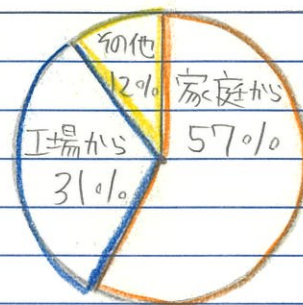 その他
12%
家庭から
57%
工場から
31%